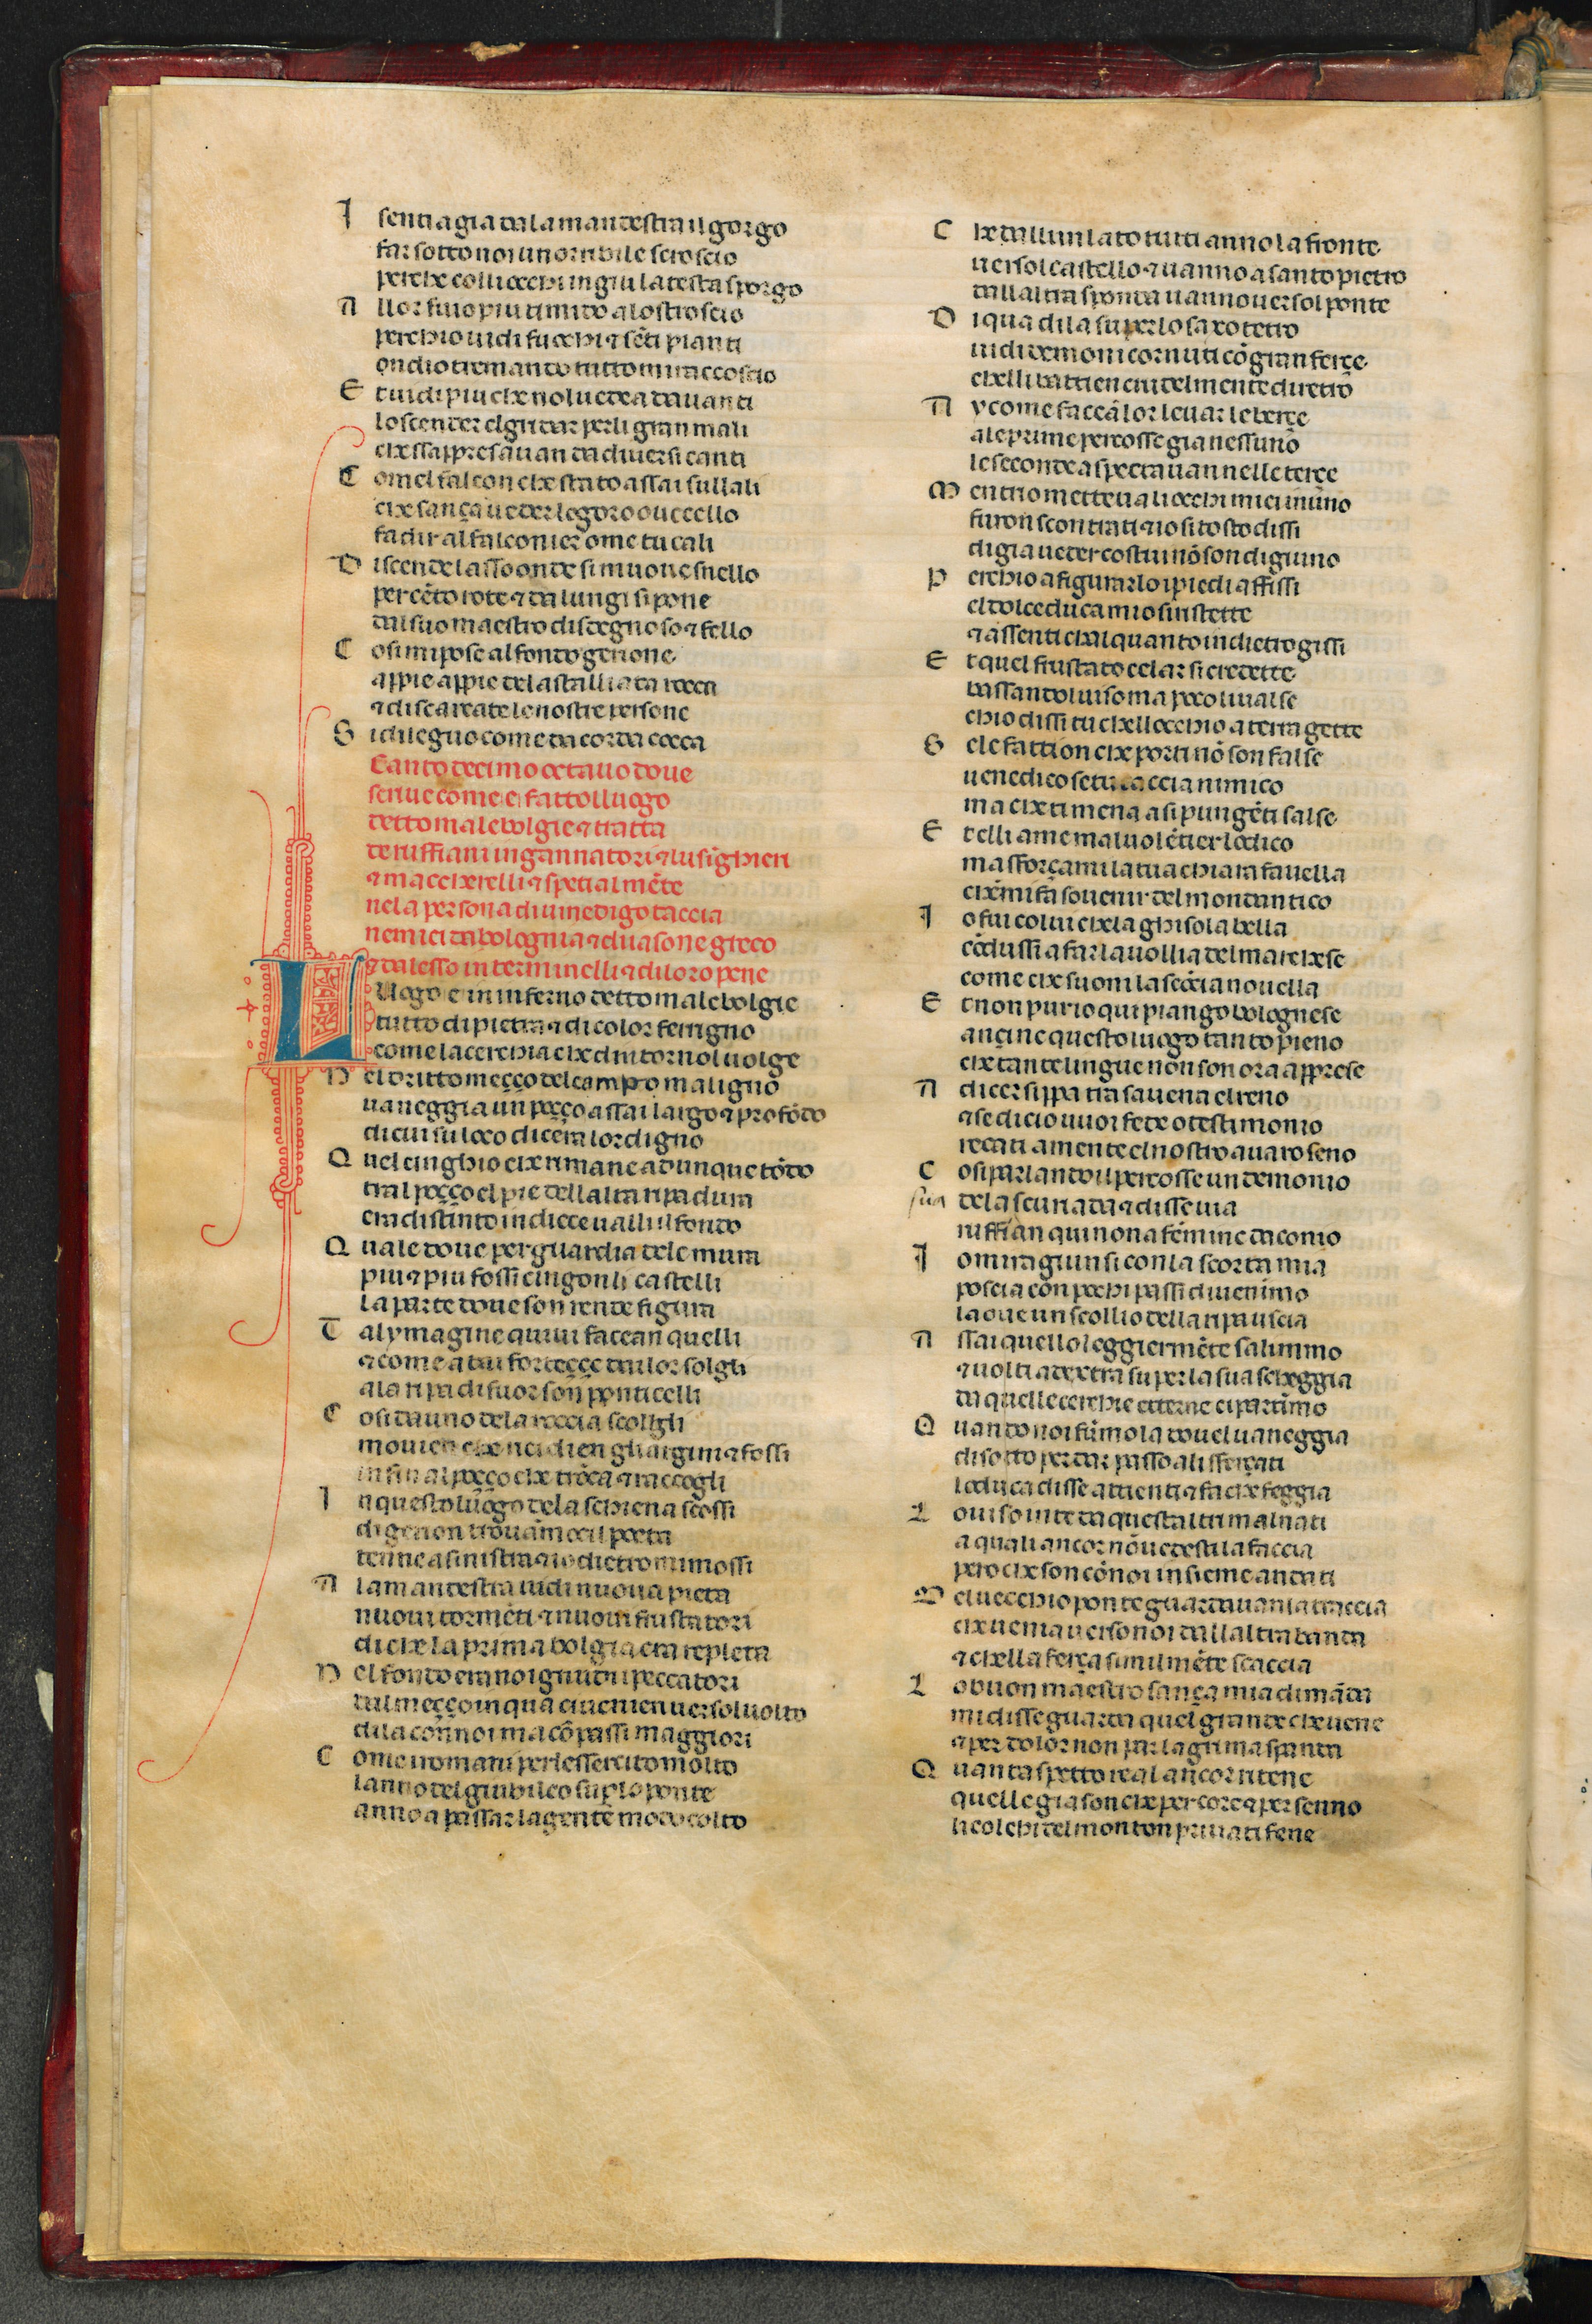 I sentia gia da la man destra il gorgo
far sotto noi un orribile scroscio
perche colli occhi in giu la testa sporgo
A llor fu io piu timido a lo stroscio
perchio uidi fuochi ⁊ sēti pianti
ondio tremando tutto mi raccoscio
E t uidi piu che no lu uedea dauanti
lo scender el girar per li gran mali
che ssappresāuan da diuersi canti
C omel falcon che stato assai sullali
che sança ueder logoro o uccello
fa dir al falconier ome tu cali
D iscende lasso onde si muoue snello
per cēto rote ⁊ da lungi si pone
dal suo maestro disdegnoso ⁊ fello
C osi mi pose al fondo gerione
appie appie de la stalliata rocca
⁊ discarcate le nostre persone
S i dileguo come da corda cocca
Canto decimo octauo doue
scriue come e fatto lluogo
detto malebolgie ⁊ tratta
de ruffiani ingannatori ⁊ lusighieri
⁊ maccherelli ⁊ spetialmēte
ne la persona di uinedigo caccia
nemici da bolognia ⁊ di iasone greco
⁊ dalesso interminelli ⁊ di loro pene
L Uogo e in inferno detto malebolgie
tutto di pietra ⁊ di color ferrigno
come la cerchia che dintorno l uolge
N el dritto meçço del campo maligno
uaneggia un poçço assai largo ⁊ profōdo
di cui su loco dicera lordigno
Q uel cinghio che rimane adunque tōdo
tral poçço el pie dellalta ripa dura
era distinto in diece ualli il fondo
Q uale doue per guardia de le mura
piu ⁊ piu fossi cingon li castelli
la parte doue son rende figura
T al ymagine quiui facean quelli
⁊ come a tai forteççe dai lor solgli
a la ripa di fuor son ponticelli
C osi da imo de la roccia scollgli
mouien che ricidien gliargini ⁊ fossi
infin al poçço che trōca ⁊ raccogli
I n questo luogo de la schiena scossi
di gerion trouāmoci il poeta
tenne a sinistra ⁊ io dietro mi mossi
A la man destra uidi nuoua pieta
nuoui tormēti ⁊ nuoui frustatori
di che la prima bolgia era repleta
N el fondo erano ignudi i peccatori
dal meçço in qua ci uenien uersol uolto
di la con noi ma cō passi maggiori
C ome i roman per lessercito molto
lanno del giubileo su p lo ponte
anno a passar la gente modo colto
C he dallun lato tutti anno la fronte
uersol castello ⁊ uanno a santo pietro
dallaltra sponda uanno uersol ponte
D i qua di la su per lo saxo tetro
uidi demoni cornuti cō gran ferçe
chelli battien crudelmente di retro
A y come faccā lor leuar le berçe
a le prime percosse gia nessuno
le seconde aspectaua n nelle terçe
M entrio metteua li occhi miei in ūno
furon scontrati ⁊ io si tosto dissi
di gia ueder costui nō son digiuno
P erchio a figurarlo i piedi affissi
el dolce duca mio si nstette
⁊ assenti chalquanto in dietro gissi
E t quel frustato celar si credette
bassando l uiso ma poco li ualse
chio dissi tu chellocchio a terra gette
S e le fattion che porti nō son false
uenedico se tu caccianimico
ma che ti mena a si pungēti salse
E t elli a me mal uolētier lo dico
ma sforçami la tua chiara fauella
che mi fa souenir del mondo antico
I o fui colui che la ghisola bella
cōdussi a far la uollia del marchese
come che suoni la scōcia nouella
E t non pur io qui piango bolognese
ançi ne questo luogo tanto pieno
che tante lingue non son ora apprese
A dicer sippa tra sauena el reno
⁊ se di cio uuoi fede o testimonio
recati a mente el nostro auaro seno
C osi parlando il percosse un demonio
sua de la scuriada ⁊ disse uia
ruffian qui non a fēmine da conio
I o mi ragiunsi con la scorta mia
poscia con pochi passi diuenimo
la oue un scollio della ripa uscia
A ssai quello leggiermēte salimmo
⁊ uolti a dextra su per la sua scheggia
da quelle cerchie etterne ci partīmo
Q uando noi fūmo la doue luaneggia
di sotto per dar passo ali sferçati
lo duca disse attienti ⁊ fa che feggia
L o uiso in te da questaltri mal nati
a quali ancor nō uedesti la faccia
pero che son cō noi insieme andati
D el uecchio ponte guardauan la traccia
che uenia uerso noi dallaltra banda
⁊ chella ferça similmēte scaccia
L o buon maestro sança mia dimāda
mi disse guarda quel grande che uene
⁊ per dolor non par lagrima spanda
Q uanto aspetto real ancor ritene
quelle giason che per core ⁊ per senno
li colchi del monton priuati fene